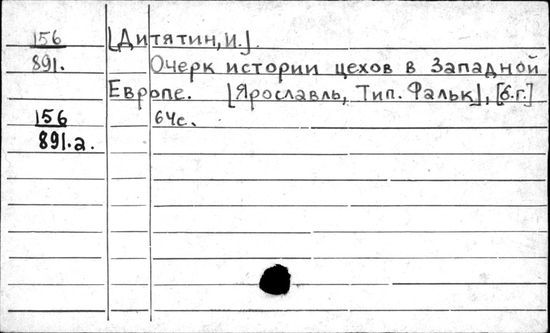 156 [Дитятин, И.].
891. Очерк истории цехов в Западной
Европе. [Ярославль, Тип. Фальк], [б.г.]
156 64с.
891.а.